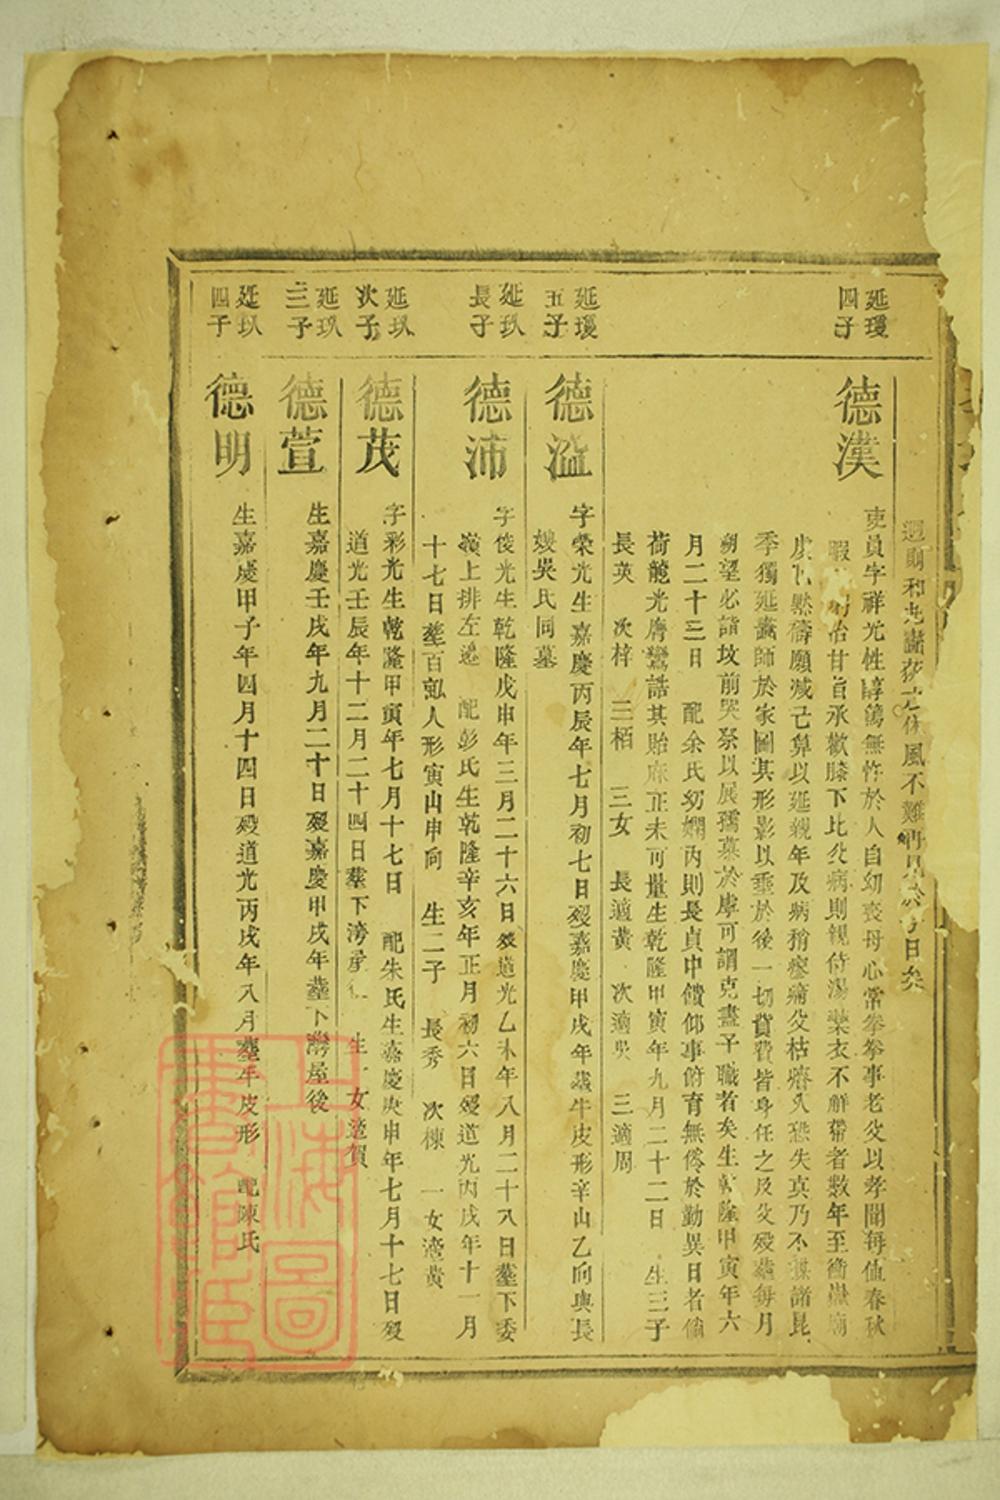 迴則和光藹
風不難
日矣
延瓊
四子
德漢
吏員字祥光性諄篤無忤於人自幼喪母心常拳拳事老父以孝聞每值春秋
暇
治甘旨承歡膝下比父病則親侍湯藥衣不解帶者數年至衡嶽廟
默禱願減己算以延親年及病稍瘳痛父枯瘠久恐失真乃不謀諸昆
季獨延畫師於家圖其形影以垂於後一切費費皆身任之及父歿葬每月
朔望必詣坟前哭祭以展孺慕於虖可謂克盡子職者矣生乾隆甲寅年六
月二十三日 配余氏幼嫻內則長貞中饋仰事俯育無倦於勤異日者倘
荷龍光膺鸞誥其貽庥正未可量生乾隆甲寅年九月二十二日 生三子
長英 次梓 三栢 三女 長適黄 次適吳 三適周
延瓊
五子
德溢
字榮光生嘉慶丙辰年七月初七日歿嘉慶甲戌年葬牛皮形辛山乙向與長
嫂吳氏同墓
延玖
長子
德沛
字俊光生乾隆戊申年三月二十六日歿道光乙未年八月二十八日葬下委
嶺上排左邊 配彭氏生乾隆辛亥年正月初六日歿道光丙戌年十一月
十七日葬百 人形寅山申向 生二子 長秀 次棟 一女適黄
延玖
次子
德茂
字彩光生乾隆甲寅年七月十七日 配朱氏生嘉慶庚申年七月十七日歿
道光壬辰年十二月二十四日葬下湾 生一女適賀
延玖
三子
德萱
生嘉慶壬戌年九月二十日歿嘉慶甲戌年葬下灣屋後
延玖
四子
德明
生嘉慶甲子年四月十四日歿道光丙戌年八月葬牛皮形 配陳氏
上海圖
書館藏